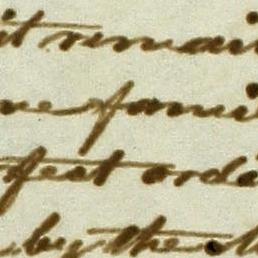 it remai
ne fami
fect orde
by the